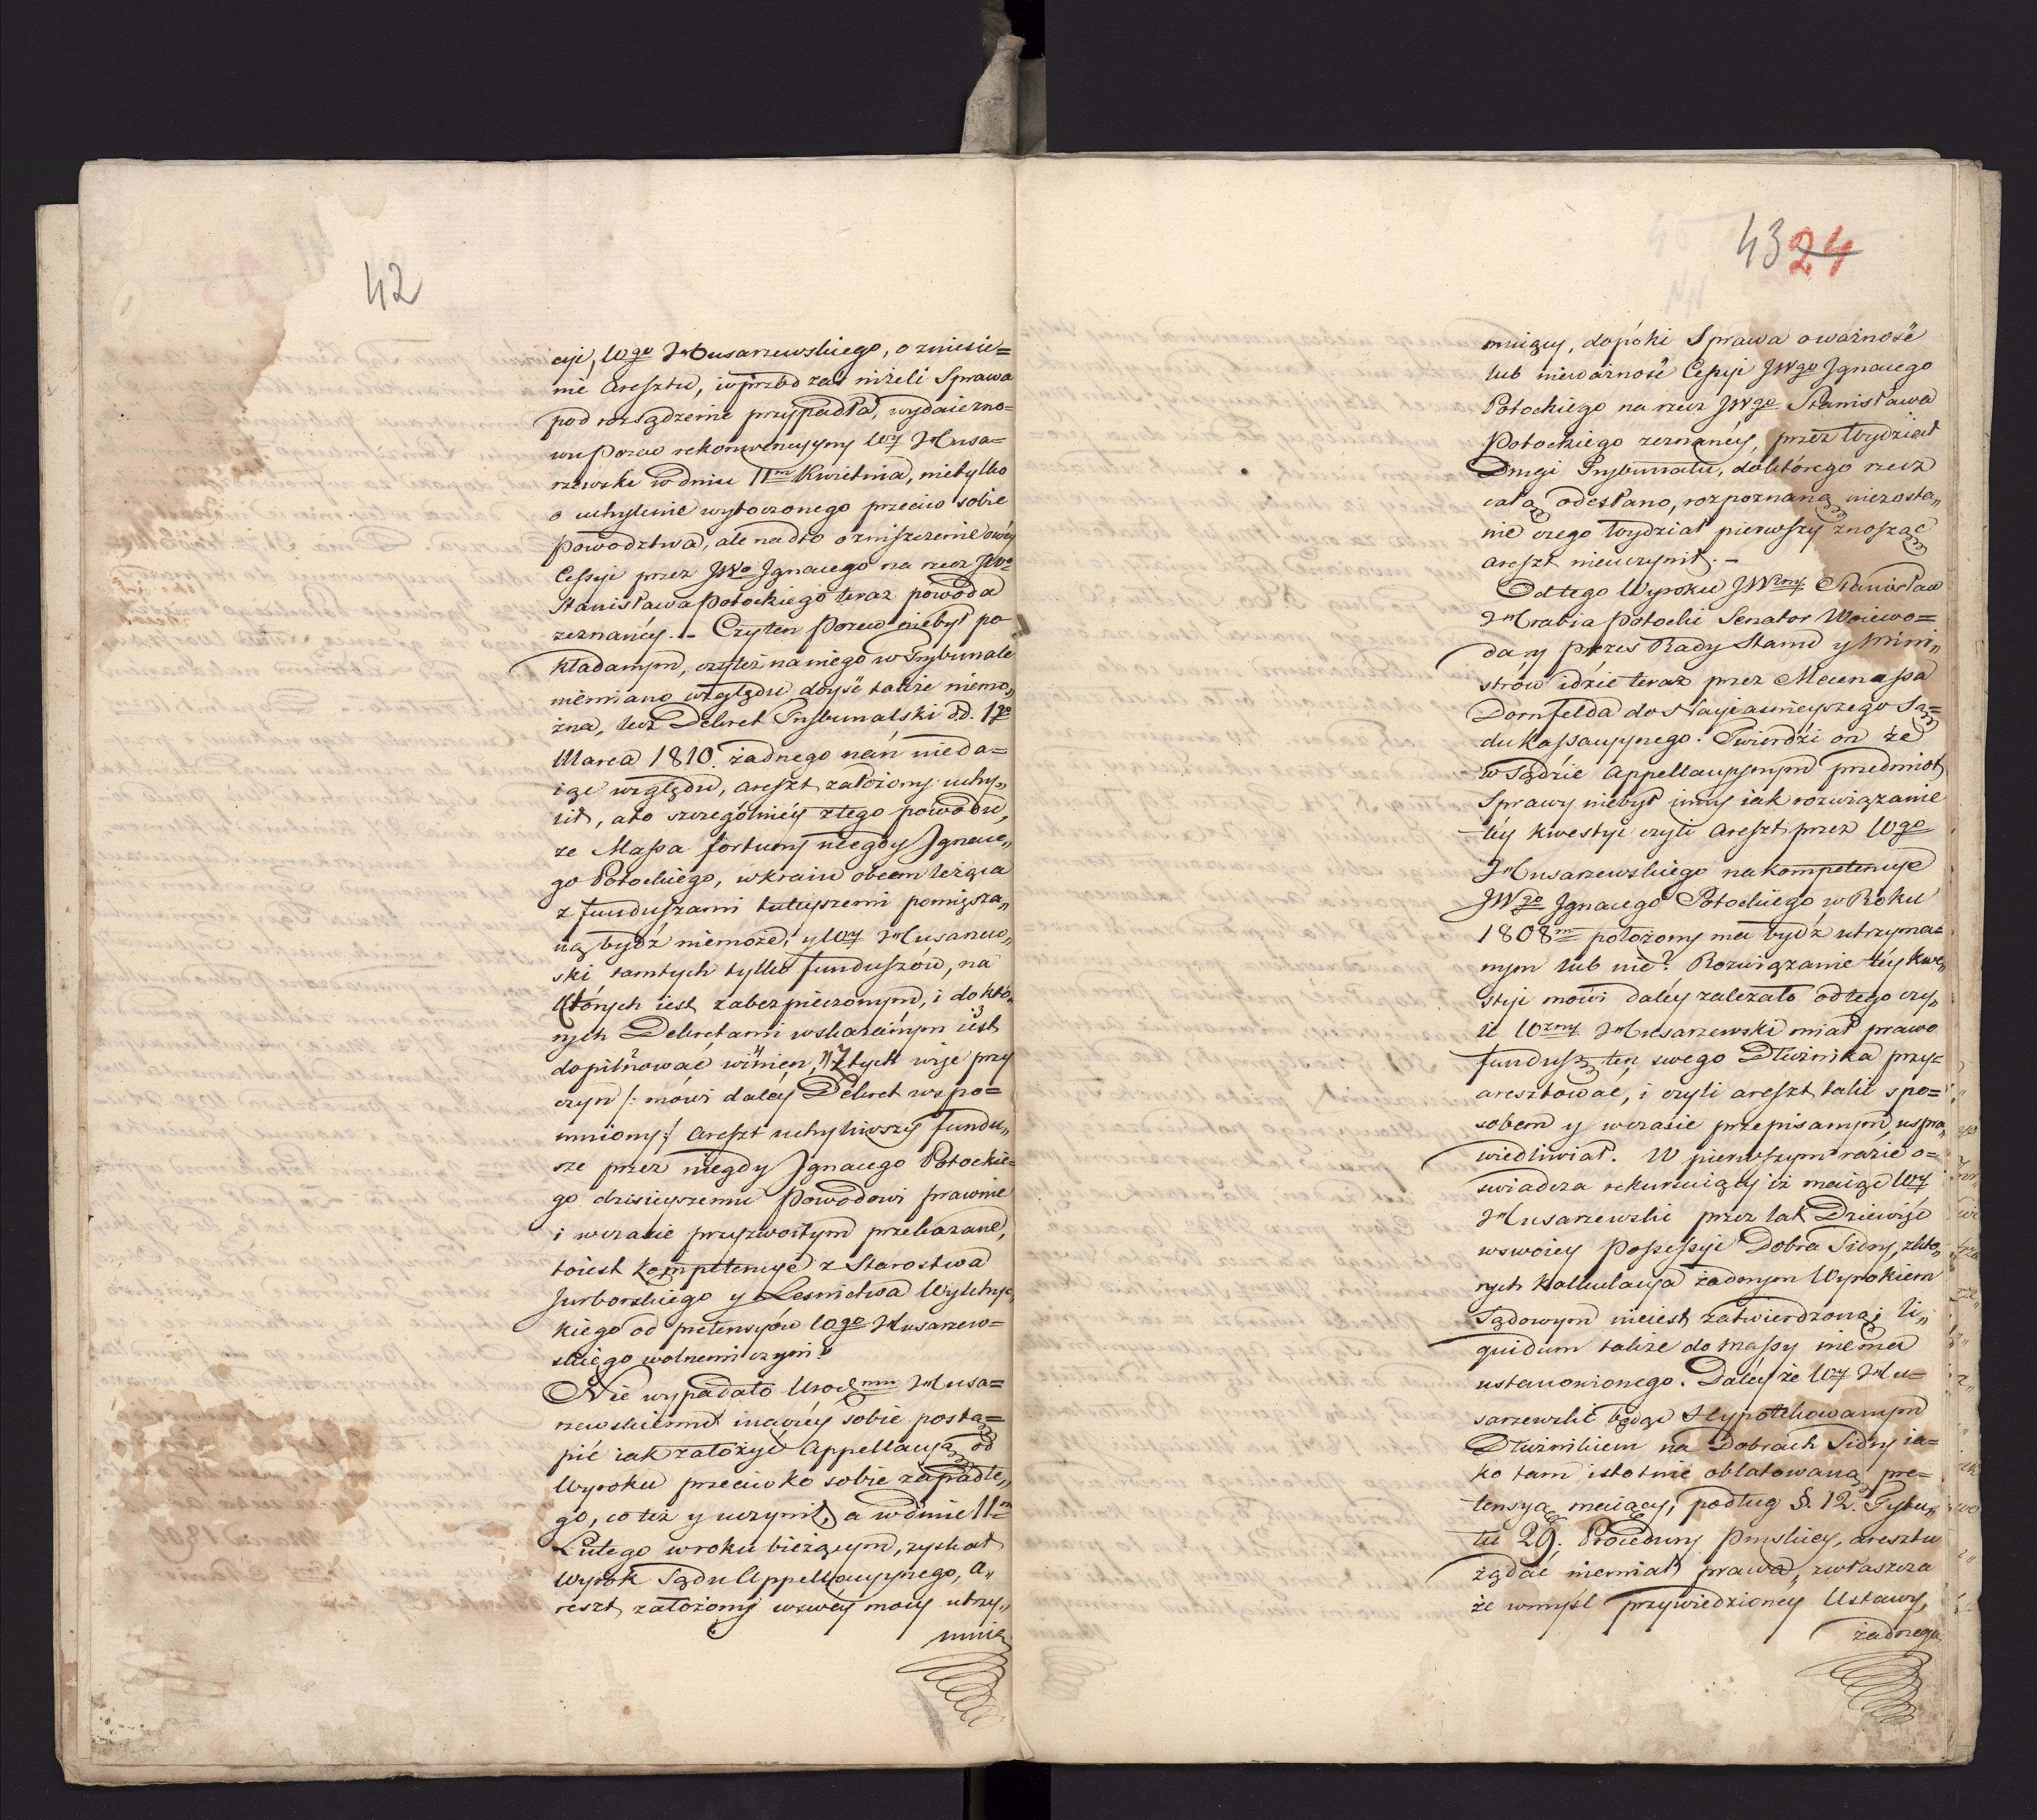 42
cyi, Wgo Husarzewskiego, o zniesie=
nie Aresztu, wprzód zaś niżeli Sprawa
pod rozsądzenie przypadła, wydaie zno=
wu Pozew rekonwencyyny Wy Husa=
rzewski w dniu 11m Kwietnia, nietylko
o uchylenie wytoczonego przeciw sobie
Powodztwa, ale nadto o zniszczenie owéy
Cessyi przez JWo Ignacego na rzecz JWo
Stanisława Potockiego teraz powoda
zeznanéy. – Czy ten Pozew niebył po-
kładanym, czyteż na niego w Trybunale
niemiano względu doyść także niemo„
żna, lecz Dekret Trybunalski d.d. 1go
Marca 1810. żadnego nań nieda=
iąc względu, areszt założony uchy„
lił, a to szczególniéy z tego powodu,
że Massa fortuny niegdy Ignace„
go Potockiego, w kraiu obcem leżąca
z funduszami tutuyszemi pomięsza„
ną bydź niemoże, y Wy Husarzew„
ski tamtych tylko funduszów, na
których iest zabezpieczonym, i do któ„
rych Dekretami wskazanym iest
dopilnować winien, „Z tych więc przy
czyn /: mówi daléy Dekret wspo=
mniony :/ Areszt uchyliwszy fundu„
sze przez niegdy Ignacego Potockie=
go dzisieyszemu Powodowi prawnie
i w czasie przyzwoitym przekazane,
toiest kompetencye z Starostwa
Jurborskiego y Lesnictwa Wysztyc„
kiego od pretensyów Wgo Husarzew=
skiego wolnemi czyni."
Nie wypadało Urodzmu Husa=
rzewskiemu inaczéy sobie postą=
pić iak założyć Appellacyą od
Wyroku przeciwko sobie zapadłe„
go, co też y uczynił, a w dniu 11m
Lutego w roku bieżącym, zyskał
Wyrok Sądu Appellacyynego, A„
reszt założony w swéy mocy utrzy„
muią
43 24
muiący, dopóki Sprawa o ważność
lub nieważność Cessyi JWgo Ignacego
Potockiego na rzecz JWgo Stanisława
Potockiego zeznanéy, przez Wydział
Drugi Trybunału, do którego rzecz
całą odesłano, rozpoznaną niezosta„
nie czego Wydział pierwszy znosząc
areszt nieuczynił. –
Od tego Wyroku JWżny Stanisław
Hrabia Potocki Senator Woiewo=
da y Prezes Rady Stanu y Mini„
strów idzie teraz przez Mecenassa
Dornfelda do Nayiaśnieyszego Są=
du Kassacyynego. Twierdzi on że
w Sądzie Appellacyynym przedmiot
Sprawy niebył inny iak rozwiązanie
téy kwestyi czyli Areszt przez Wgo
Husarzewskiego na kompetencye
JWgo Ignacego Potockiego w Roku
1808m położony ma bydź utrzyma=
nym lub nie? Rozwiązanie téy kwe„
styi mówi daléy zależało od tego czy„
li Wżny Husarzewski miał prawo
fundusz ten swego Dłużnika przy=
aresztować, i czyli areszt takie spo=
sobem y w czasie przepisanym uspra„
wiedliwiał. W pierwszym razie o=
swiadcza rekuruiący iż maiąc Wy
Husarzewski przez lat Dziewięć
w swoiey Possessyi Dobra Sidry, z któ„
rych kalkulacya żadnym Wyrokiem
Sądowym nieiest zatwierdzoną; li„
quidum także do Massy niema
ustanowionego. Daléy że Wy Hu=
sarzewski będąc Hypotekowanym
Dłużnikiem na Dobrach Sidry ia=
ko tam istotnie oblatowaną pre=
tensyą maiący, podług §. 12. Tytu„
łu 29. Procedury Pruskiey, aresztu
żądać niemiał prawa, zwłaszcza
że w myśl przywiedzionéy Ustawy,
żadnego